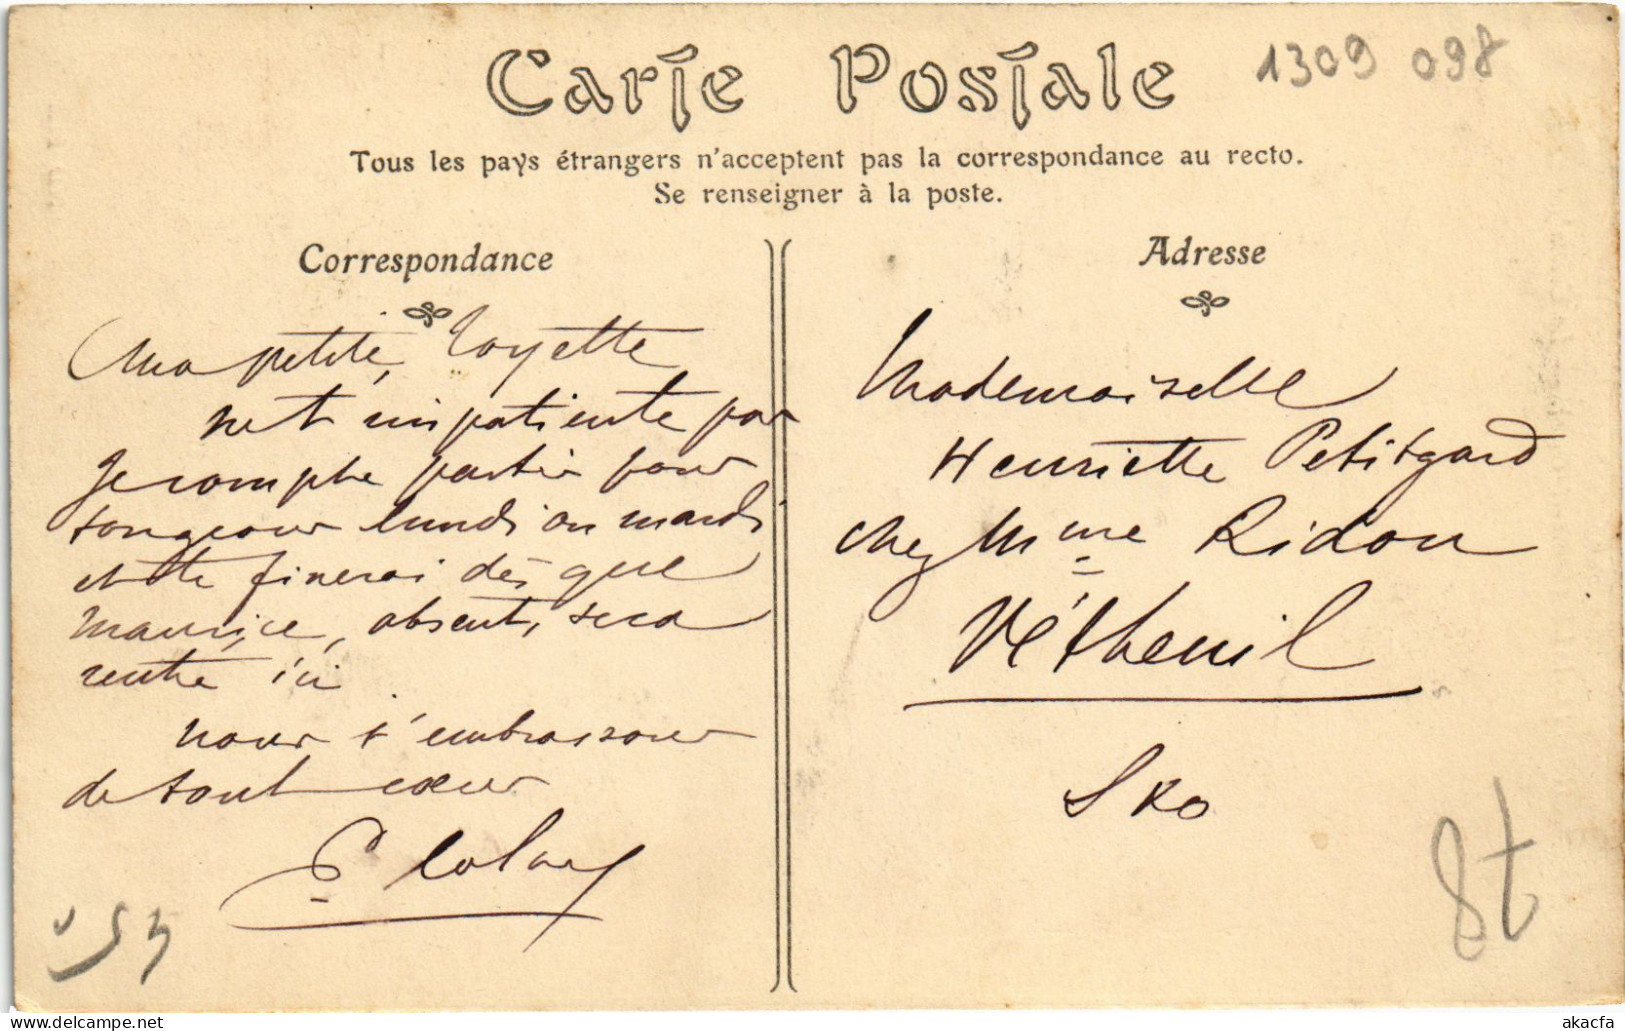 Carte Postale
1309 098
Tous les pays étrangers n'acceptent pas la correspondance au recto.
Se renseigner à la poste.
Correspondance
Ma petite
net impatiente pas
Je compte partir pour
lundi ou mardi
et te finerai dès que
Maurice, absent, sera
rentré ici
nous t'embrassons
de tout cœur
Adresse
Mademoiselle
Henriette Petitgard
chez Mme Ridou
Vétheuil
S&O
akacfa